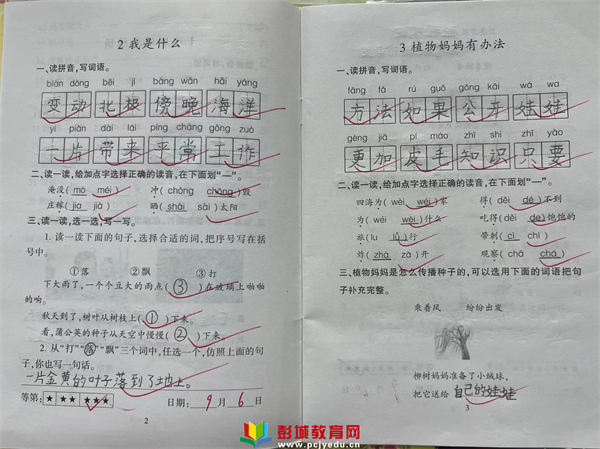 2 我是什么
一、读拼音,写词语。
biàn dòng běi jí bàng wǎn hǎi yáng
变动 北极 傍晚 海洋
yí piàn dài lái píng cháng gōng zuò
一片 带来 平常 工作
二、读一读,给加点字选择正确的读音,在下面划“—”。
淹没(mò méi) 冲(chōng chǒng)毁
庄稼(jia jià) 晒(shài sài)太阳
三、读一读,选一选,写一写。
1. 读一读下面的句子,选择合适的词,把序号写在括
号中。
①落 ②飘 ③打
下大雨了,一个个豆大的雨点(③)在玻璃上啪啪
的响。
秋天到了,树叶从树枝上(①)下来。
看,蒲公英的种子从天空中慢慢(②)下来。
2. 从“打”“落”“飘”三个词中,任选一个,仿照上面的句
子,你也写一句话。
一片金黄的叶子落到了地上。
等第:★ ★★ ★★★ 日期: 9 月 6 日
2
3 植物妈妈有办法
一、读拼音,写词语。
fāng fǎ rú guǒ gōng kāi wá wa
方法 如果 公开 娃娃
gèng jiā pí máo zhī shi zhǐ yào
更加 皮毛 知识 只要
二、读一读,给加点字选择正确的读音,在下面划“—”。
四海为(wéi wèi)家 得(děi dé)不到
为(wéi wèi)什么 吃得(děi de)饱饱的
旅(lu lǚ)行 带刺(cì chì)
炸(zhà zà)开 观察(chá cá)
三、植物妈妈是怎么传播种子的,可以选用下面的词语把句
子补充完整。
乘着风 纷纷出发
柳树妈妈准备了小绒球,
把它送给自己的娃娃
3
彭城教育网
www.pcjyedu.com